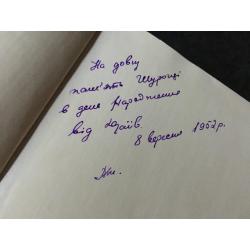 На довгу
пам'ять Шурочці
в день Народження
від
8 вересня 1952 р.